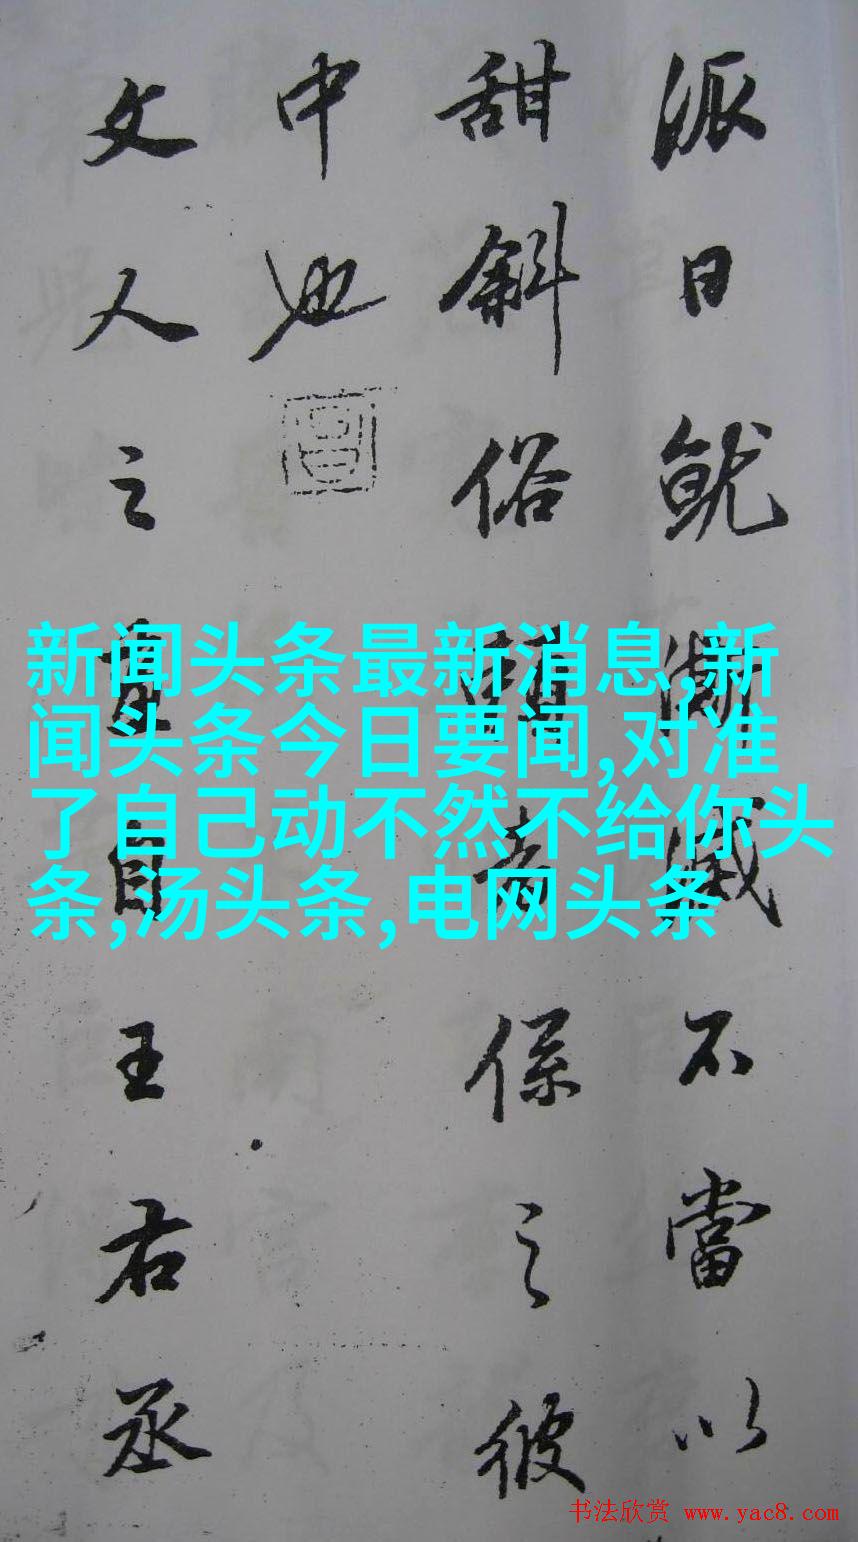 派日就澌滅不當以
甜斜俗賴者係之彼
中也
文人之畫自王右丞
新闻头条最新消息,新
闻头条今日要闻,对准
了自己动不然不给你头
条,汤头条,电网头条
书法欣赏 www.yac8.com